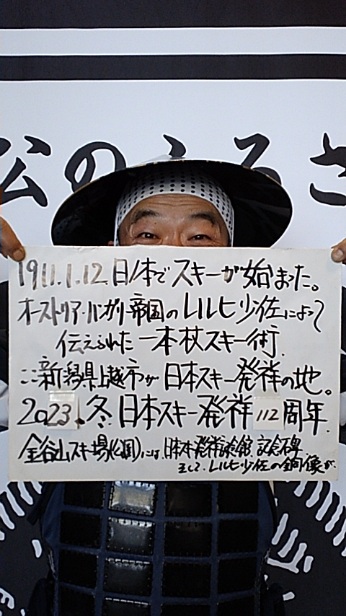 公のふるさ
1911.1.12 日本でスキーが始まった。
オーストリア・ハンガリー帝国のレルヒ少佐によって
伝えられた一本杖スキー術.
ここ新潟県上越市が日本スキー発祥の地。
2023.冬.日本スキー発祥112周年.
金谷山スキー場(公園)には、日本スキー発祥記念館、記念碑
そして、レルヒ少佐の銅像が